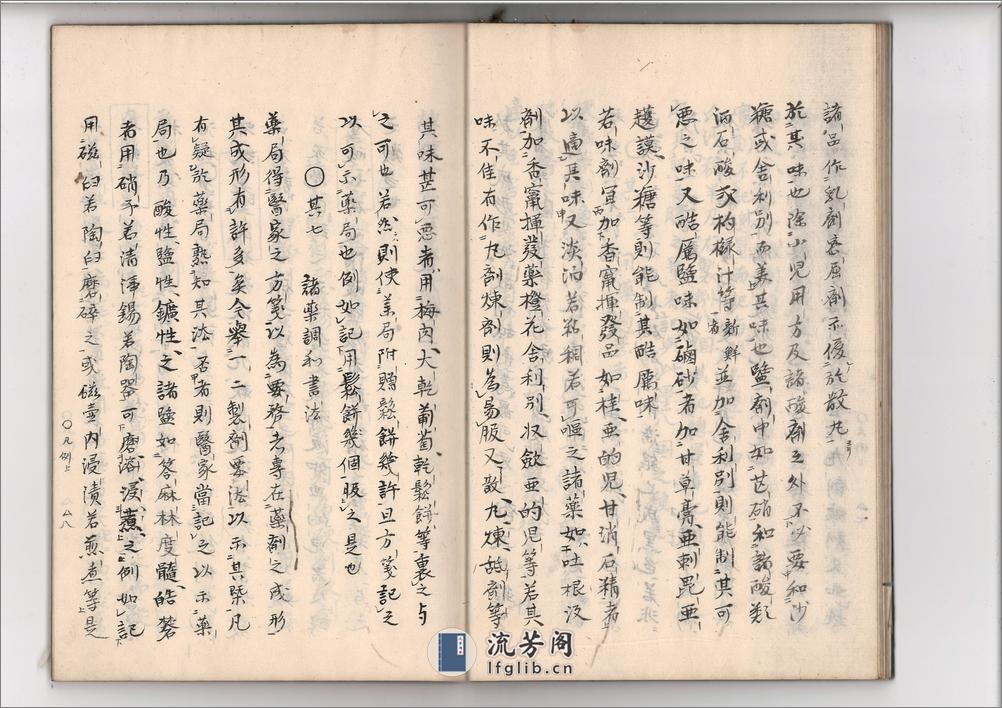 諸品作乳劑舍屈劑示優於散丸
於其味也除小児用方及諸酸劑之外不必要和沙
糖或舍利別而美其味也盬劑中如芒硝和諸酸類
酒石酸或枸櫞汁等新鮮者並加舍利別則能制其可
悪之味又酷厲盬味如磠砂者加甘草膏亜剌毘亜
護謨沙糖等則能制其酷厲味
若味劑宜加香竄揮發品如桂亜的児甘消石精者
以痛其味又淡泊若黏稠若可嘔之諸薬如吐根没
劑加香竄揮發薬橙花舍利別収斂亜的児等若其
味不佳有作丸劑煉劑則為易服又散丸煉舐劑等
其味甚可悪者用梅肉大乾葡萄乾鬆餅等裏之与
之可也若然則使薬局附贈鬆餅幾許且方箋記之
以可示薬局也例如記用鬆餅幾個服之是也
〇其七 諸薬調和書法
薬局得醫家之方箋以為要務者專在薬劑之成形
其成形有許多矣今舉一二製劑要法以示其槩凡
有疑於薬局熟知其法否者則醫家當記之以示薬
局也乃酸性盬性鑛性之諸盬如答麻林度髓皓礬
者用硝子若清淨錫若陶器可磨溶浸煮之例如記
用磁臼若陶臼磨碎之或磁壷内浸漬若煎煮等是
〇凡例上
ム八
流芳阁
lfglib.cn